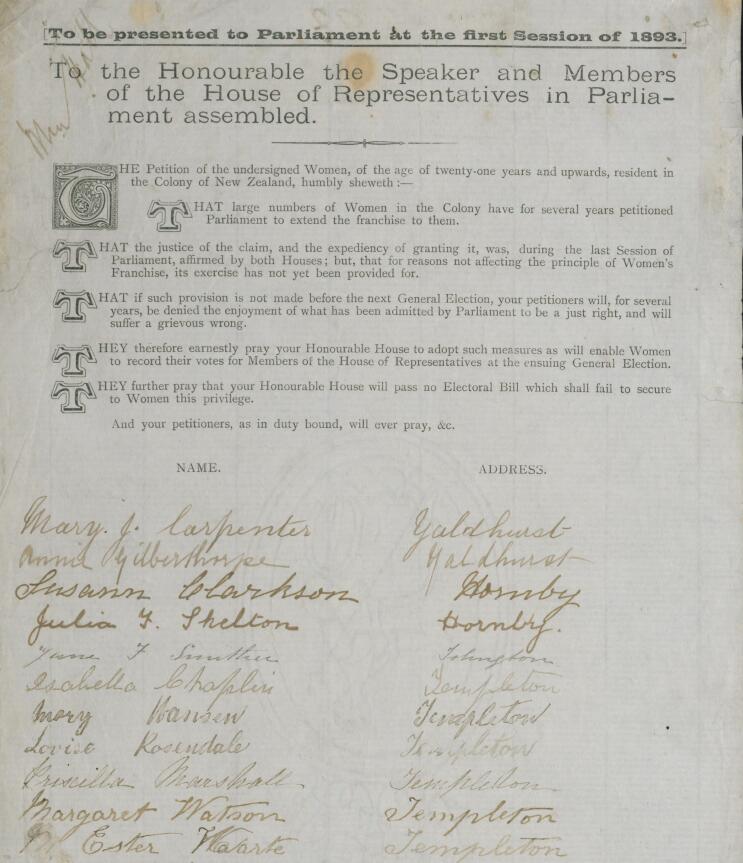 [To be presented to Parliament at the first Session of 1893.]
To the Honourable the Speaker and Members
of the House of Representatives in Parlia-
ment assembled.
THE Petition of the undersigned Women, of the age of twenty-one years and upwards, resident in
the Colony of New Zealand, humbly sheweth :—
THAT large numbers of Women in the Colony have for several years petitioned
Parliament to extend the franchise to them.
THAT the justice of the claim, and the expediency of granting it, was, during the last Session of
Parliament, affirmed by both Houses; but, that for reasons not affecting the principle of Women's
Franchise, its exercise has not yet been provided for.
THAT if such provision is not made before the next General Election, your petitioners will, for several
years, be denied the enjoyment of what has been admitted by Parliament to be a just right, and will
suffer a grievous wrong.
THEY therefore earnestly pray your Honourable House to adopt such measures as will enable Women
to record their votes for Members of the House of Representatives at the ensuing General Election.
THEY further pray that your Honourable House will pass no Electoral Bill which shall fail to secure
to Women this privilege.
And your petitioners, as in duty bound, will ever pray, &c.
NAME. ADDRESS.
Mary. J. Carpenter Yaldhurst
Annie Gilberthorpe Yaldhurst
Susann Clarkson Hornby
Julia F. Shelton Hornby.
Jane F
Isabella Chaplin Templeton
Mary Hansen Templeton
Louisa Rosendale Templeton
Priscilla Marshall Templeton
Margaret Watson Templeton
M Ester Templeton